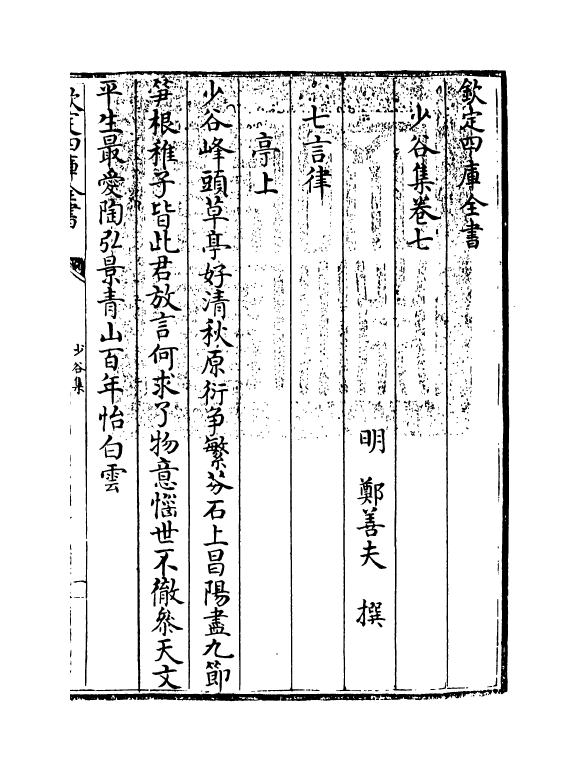 欽定四庫全書
少谷集卷七
明 鄭善夫 撰
七言律
亭上
少谷峰頭草亭好清秋原衍争繁芬石上昌陽盡九節
笋根稚子皆此君放言何求了物意惱世不徹叅天文
平生最愛陶弘景青山百年怡白雲
欽定四庫全書
少谷集
一